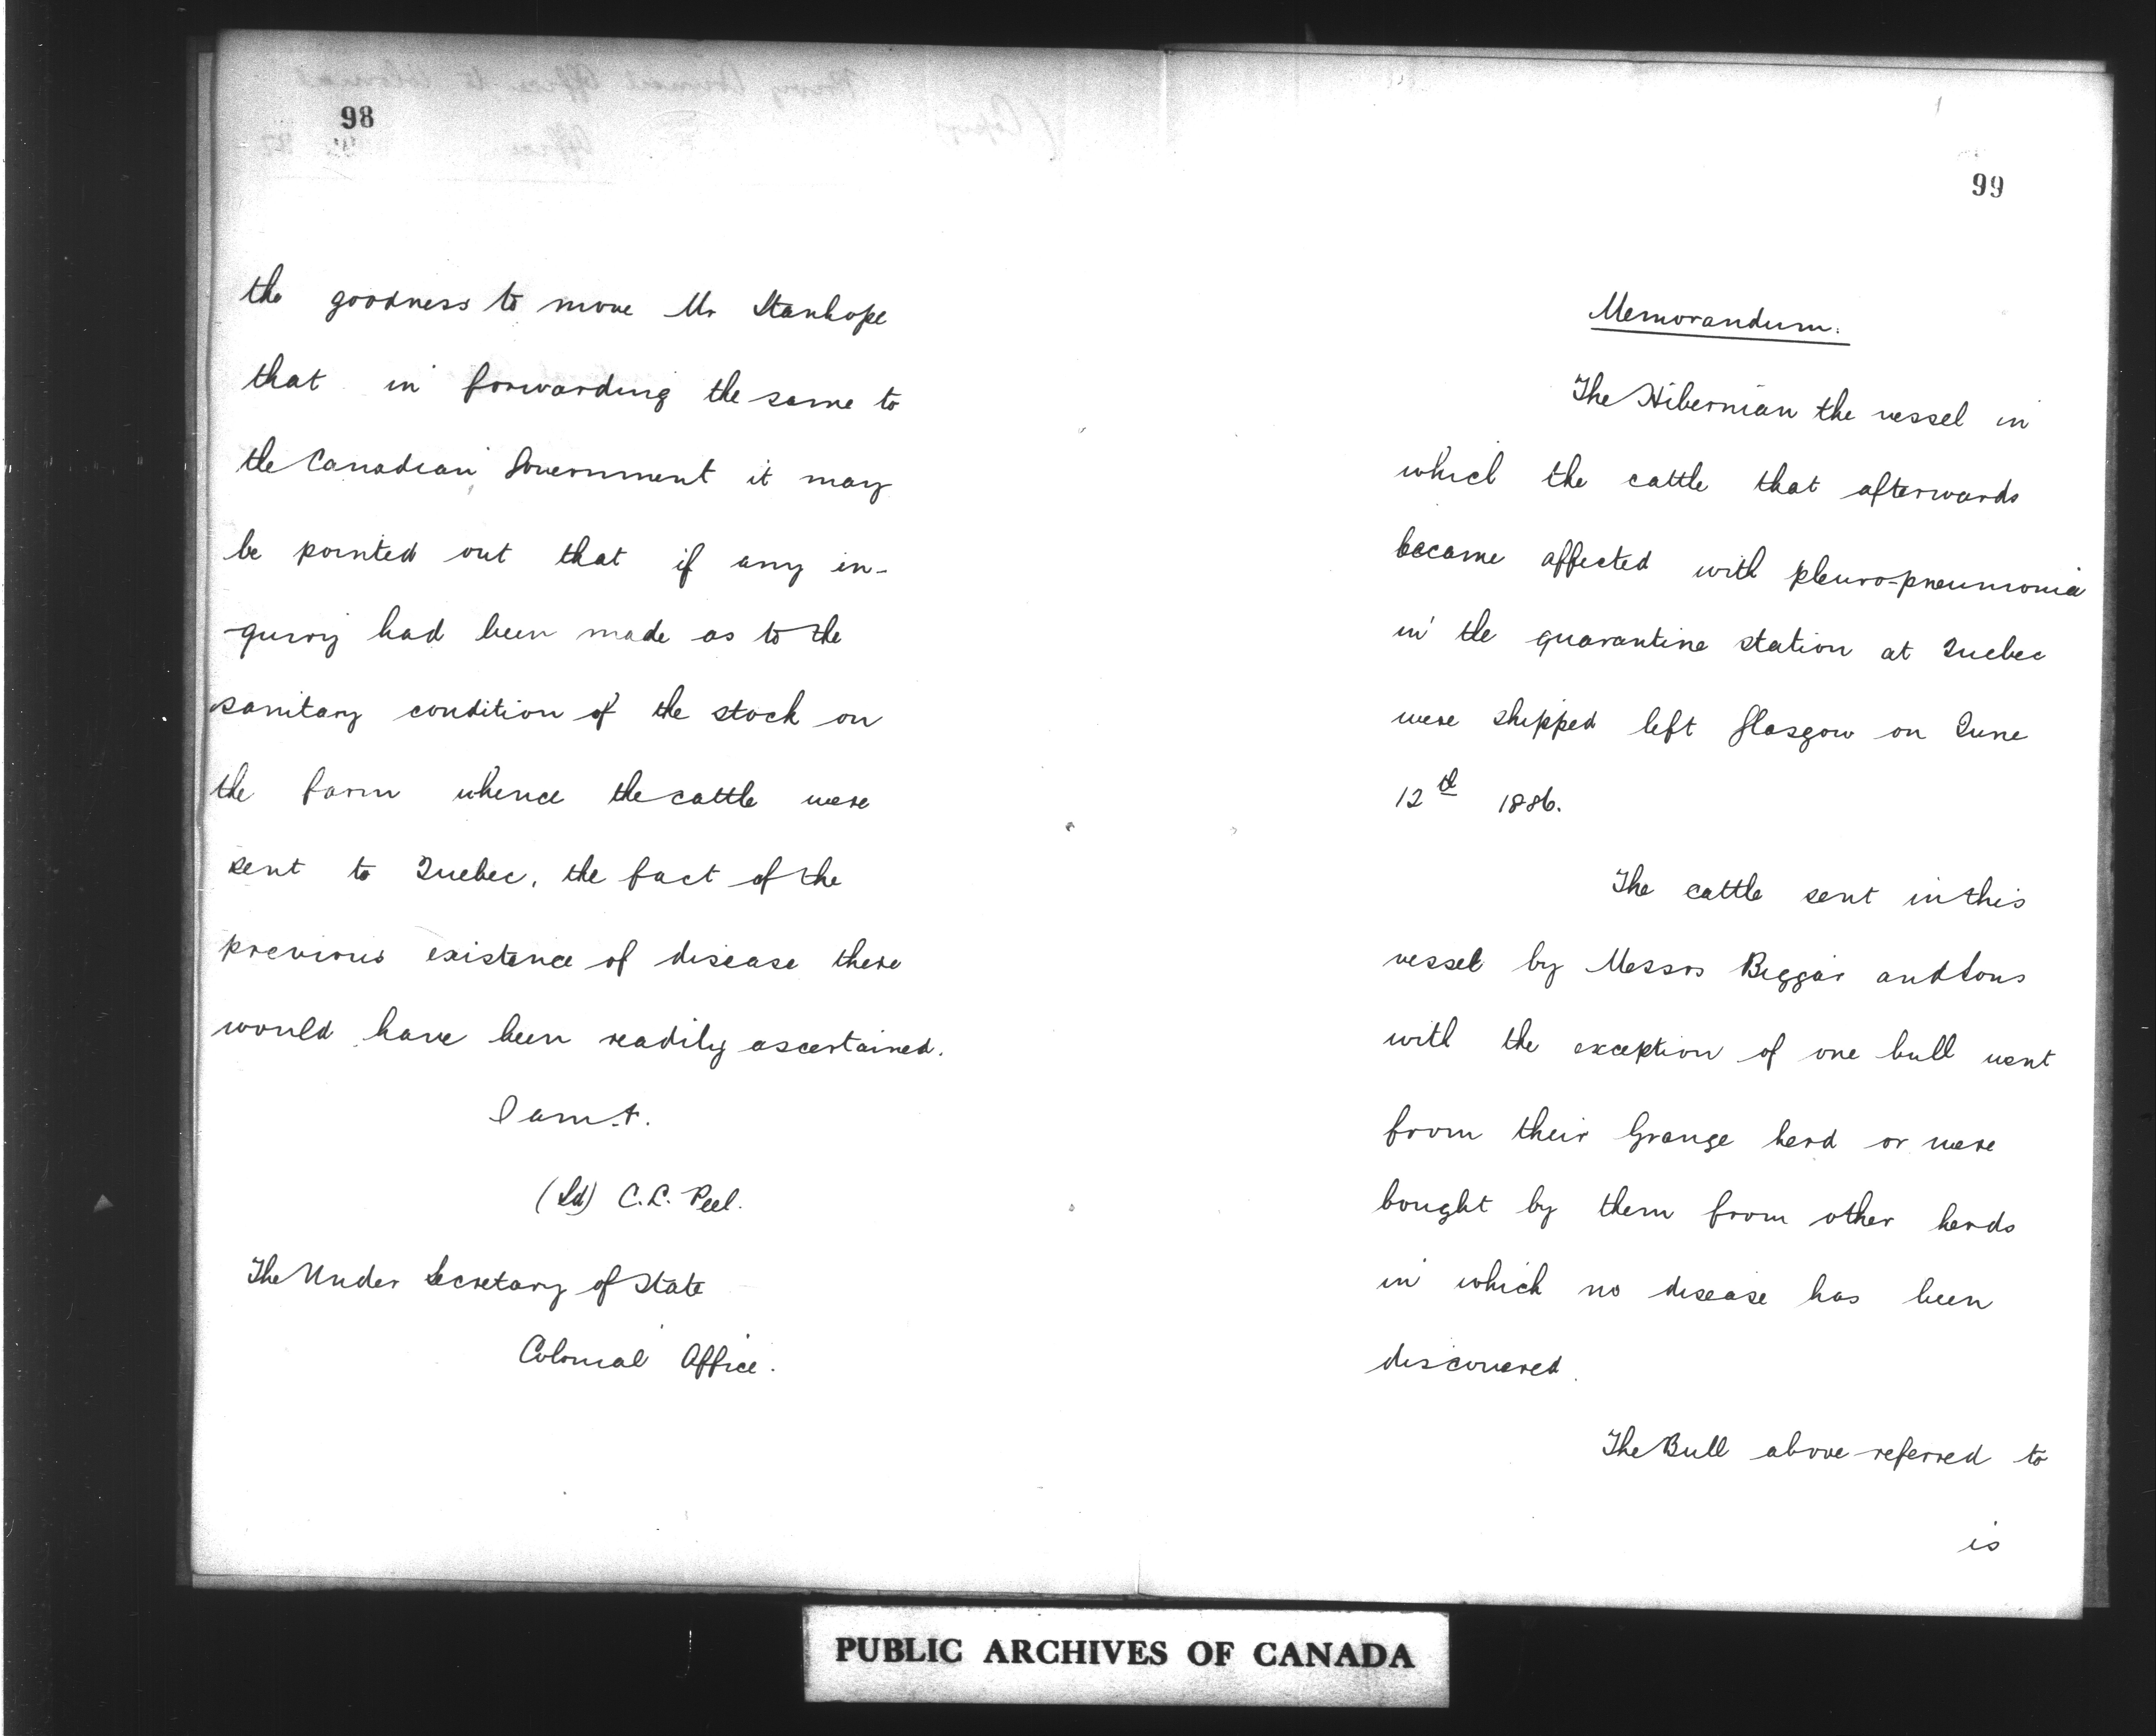 98
the goodness to move Mr Stanhope
that in forwarding the same to
the Canadian Government it may
be pointed out that if any in-
-quiry had been made as to the
sanitary condition of the stock on
the farm whence the cattle were
sent to Quebec, the fact of the
previous existence of disease there
would have been readily ascertained.
I am &.
(Sd) C. L. Peel.
The Under Secretary of State
Colonial Office.
99
Memorandum.
The Hibernian the vessel in
which the cattle that afterwards
became affected with pleuro-pneumonia
in the quarantine station at Quebec
were shipped left Glasgow on June
12th 1886.
The cattle sent in this
vessel by Messrs Biggar and Sons
with the exception of one bull went
from their Grange herd or were
bought by them from other herds
in which no disease has been
discovered.
The Bull above referred to
is
PUBLIC ARCHIVES OF CANADA